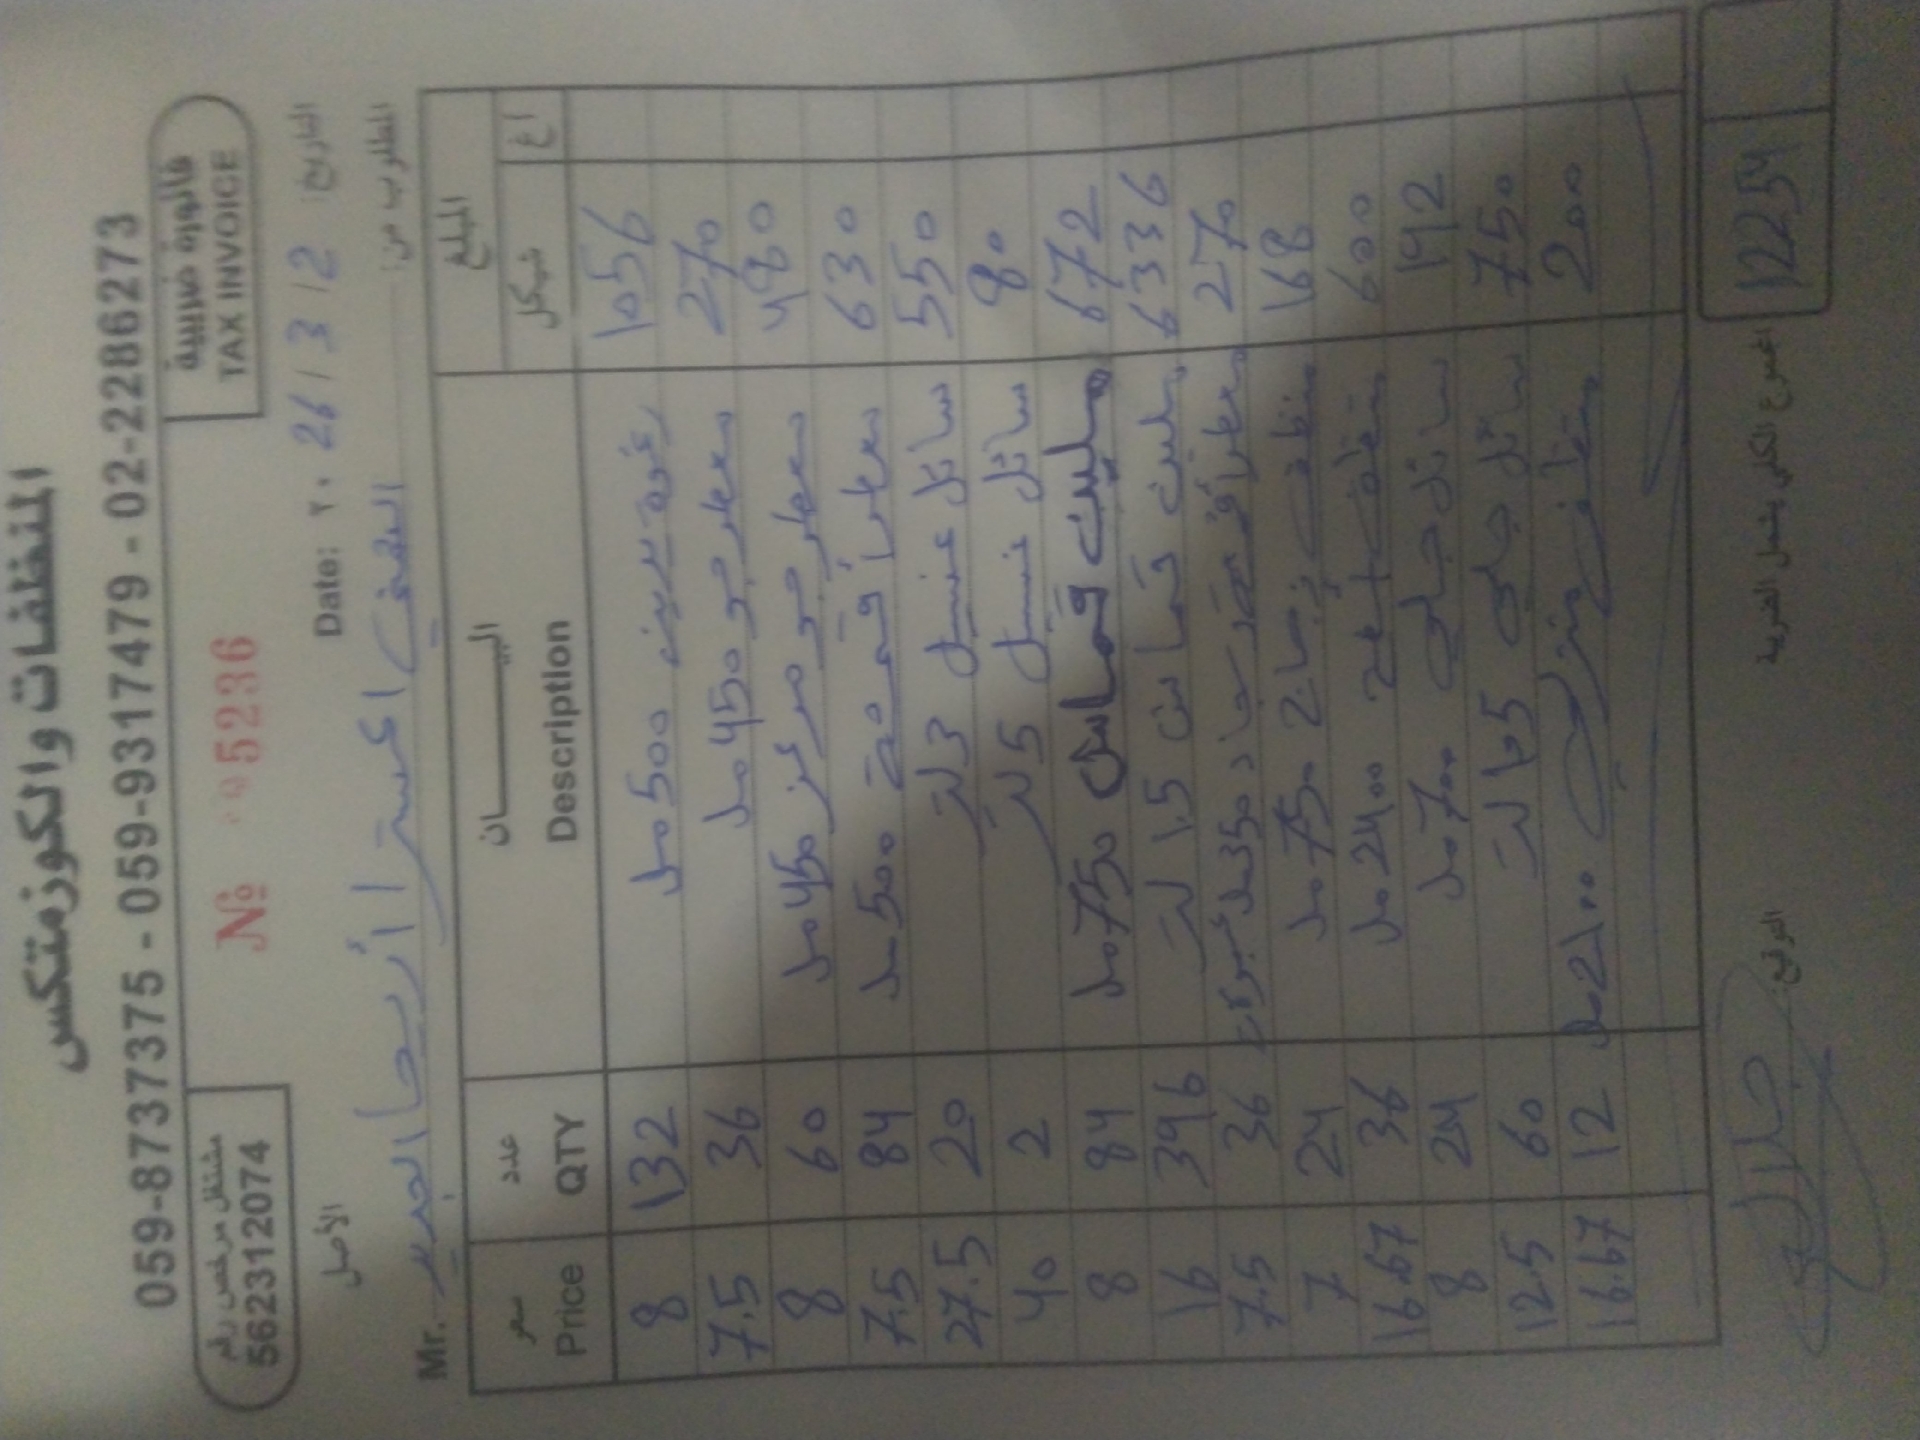 المنظفات والكوزمتكس
059-8737375 - 059-9317479 - 02-2286273
مشتغل مرخص رقم
562312074
№ 05236
فاتورة ضريبية
TAX INVOICE
الأصل Date: ٢٠26 / 3 / 2 التاريخ:
Mr. اكسترا أريحا الجديد المطلوب من:
سعر عدد البيــــــان المبلغ
Price QTY Description شيكل اغ
8 132 500 مل 1056
7.5 36 معطر جو 450 مل 270
8 60 معطر جو مركز 450 مل 480
7.5 84 معطر أقمشة 500 مل 630
27.5 20 سائل غسيل 3 لتر 550
40 2 سائل غسيل 5 لتر 80
8 84 ملين قماش 750 مل 672
16 396 ملين قماش 1.5 لتر 6336
7.5 36 معطر 350 مل 270
7 24 منظف زجاج 750 مل 168
16.67 36 2400 مل 600
8 24 سائل جلي 700 مل 192
12.5 60 سائل جلي 5 لتر 750
16.67 12 منظف 2100 مل 200
التوقيع: المجموع الكلي يشمل الضريبة 12254